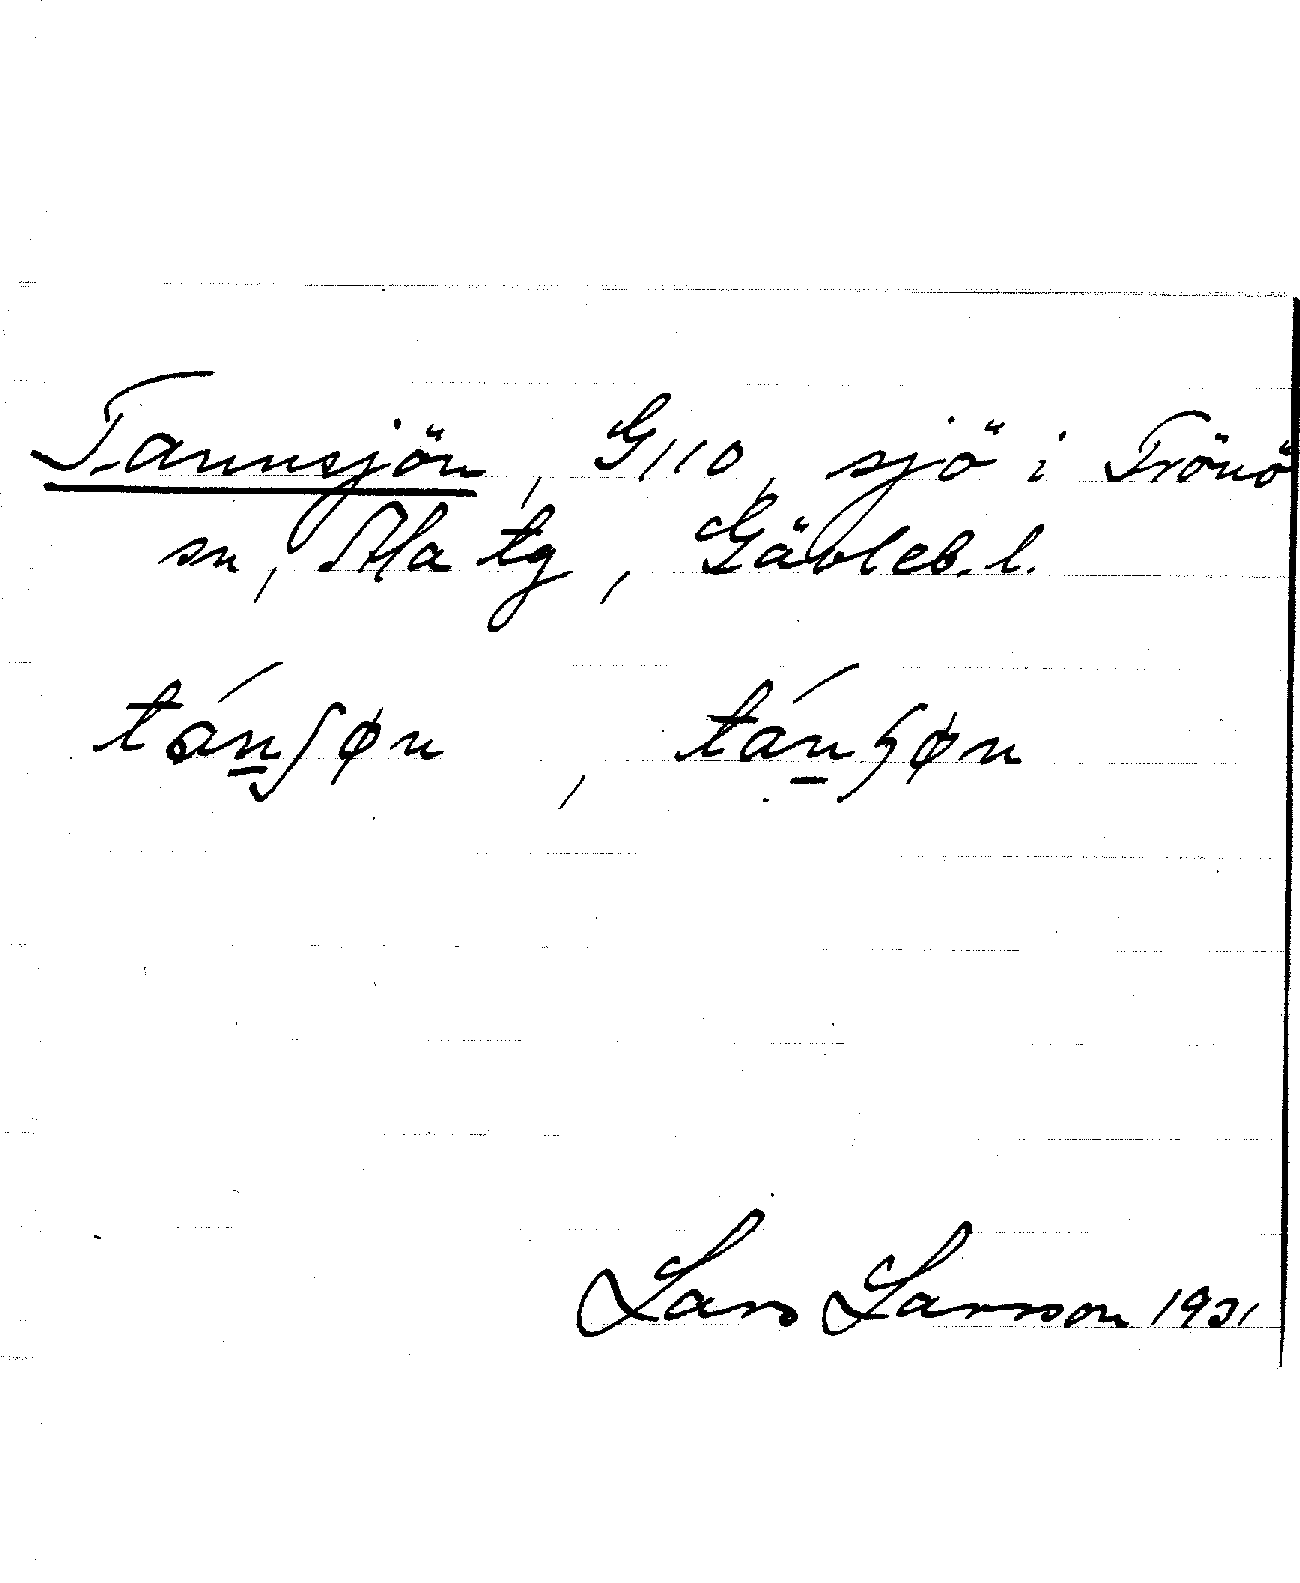 Tannsjön, G110, sjö i Trönö
sn, Ala tg, Gävleb. l.
tánʃøn, tánʃøn
Lars Larsson 1931